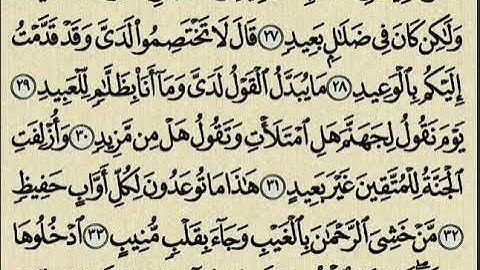 وَلَٰكِن كَانَ فِي ضَلَٰلٍۭ بَعِيدٍ ٢٧ قَالَ لَا تَخْتَصِمُوا۟ لَدَىَّ وَقَدْ قَدَّمْتُ
إِلَيْكُم بِٱلْوَعِيدِ ٢٨ مَا يُبَدَّلُ ٱلْقَوْلُ لَدَىَّ وَمَآ أَنَا۠ بِظَلَّٰمٍ لِّلْعَبِيدِ ٢٩
يَوْمَ نَقُولُ لِجَهَنَّمَ هَلِ ٱمْتَلَأْتِ وَتَقُولُ هَلْ مِن مَّزِيدٍ ٣٠ وَأُزْلِفَتِ
ٱلْجَنَّةُ لِلْمُتَّقِينَ غَيْرَ بَعِيدٍ ٣١ هَٰذَا مَا تُوعَدُونَ لِكُلِّ أَوَّابٍ حَفِيظٍ
٣٢ مَّنْ خَشِىَ ٱلرَّحْمَٰنَ بِٱلْغَيْبِ وَجَآءَ بِقَلْبٍ مُّنِيبٍ ٣٣ ٱدْخُلُوهَا